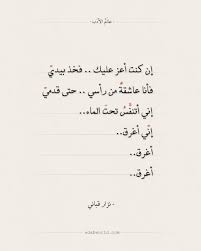 عالم الأدب
إن كنت أعز عليك .. فخذ بيديّ
فأنا عاشقةٌ من رأسي .. حتى قدميّ
إني أتنفَّسُ تحتَ الماء..
إنّي أغرق..
أغرق..
أغرق..
- نزار قباني